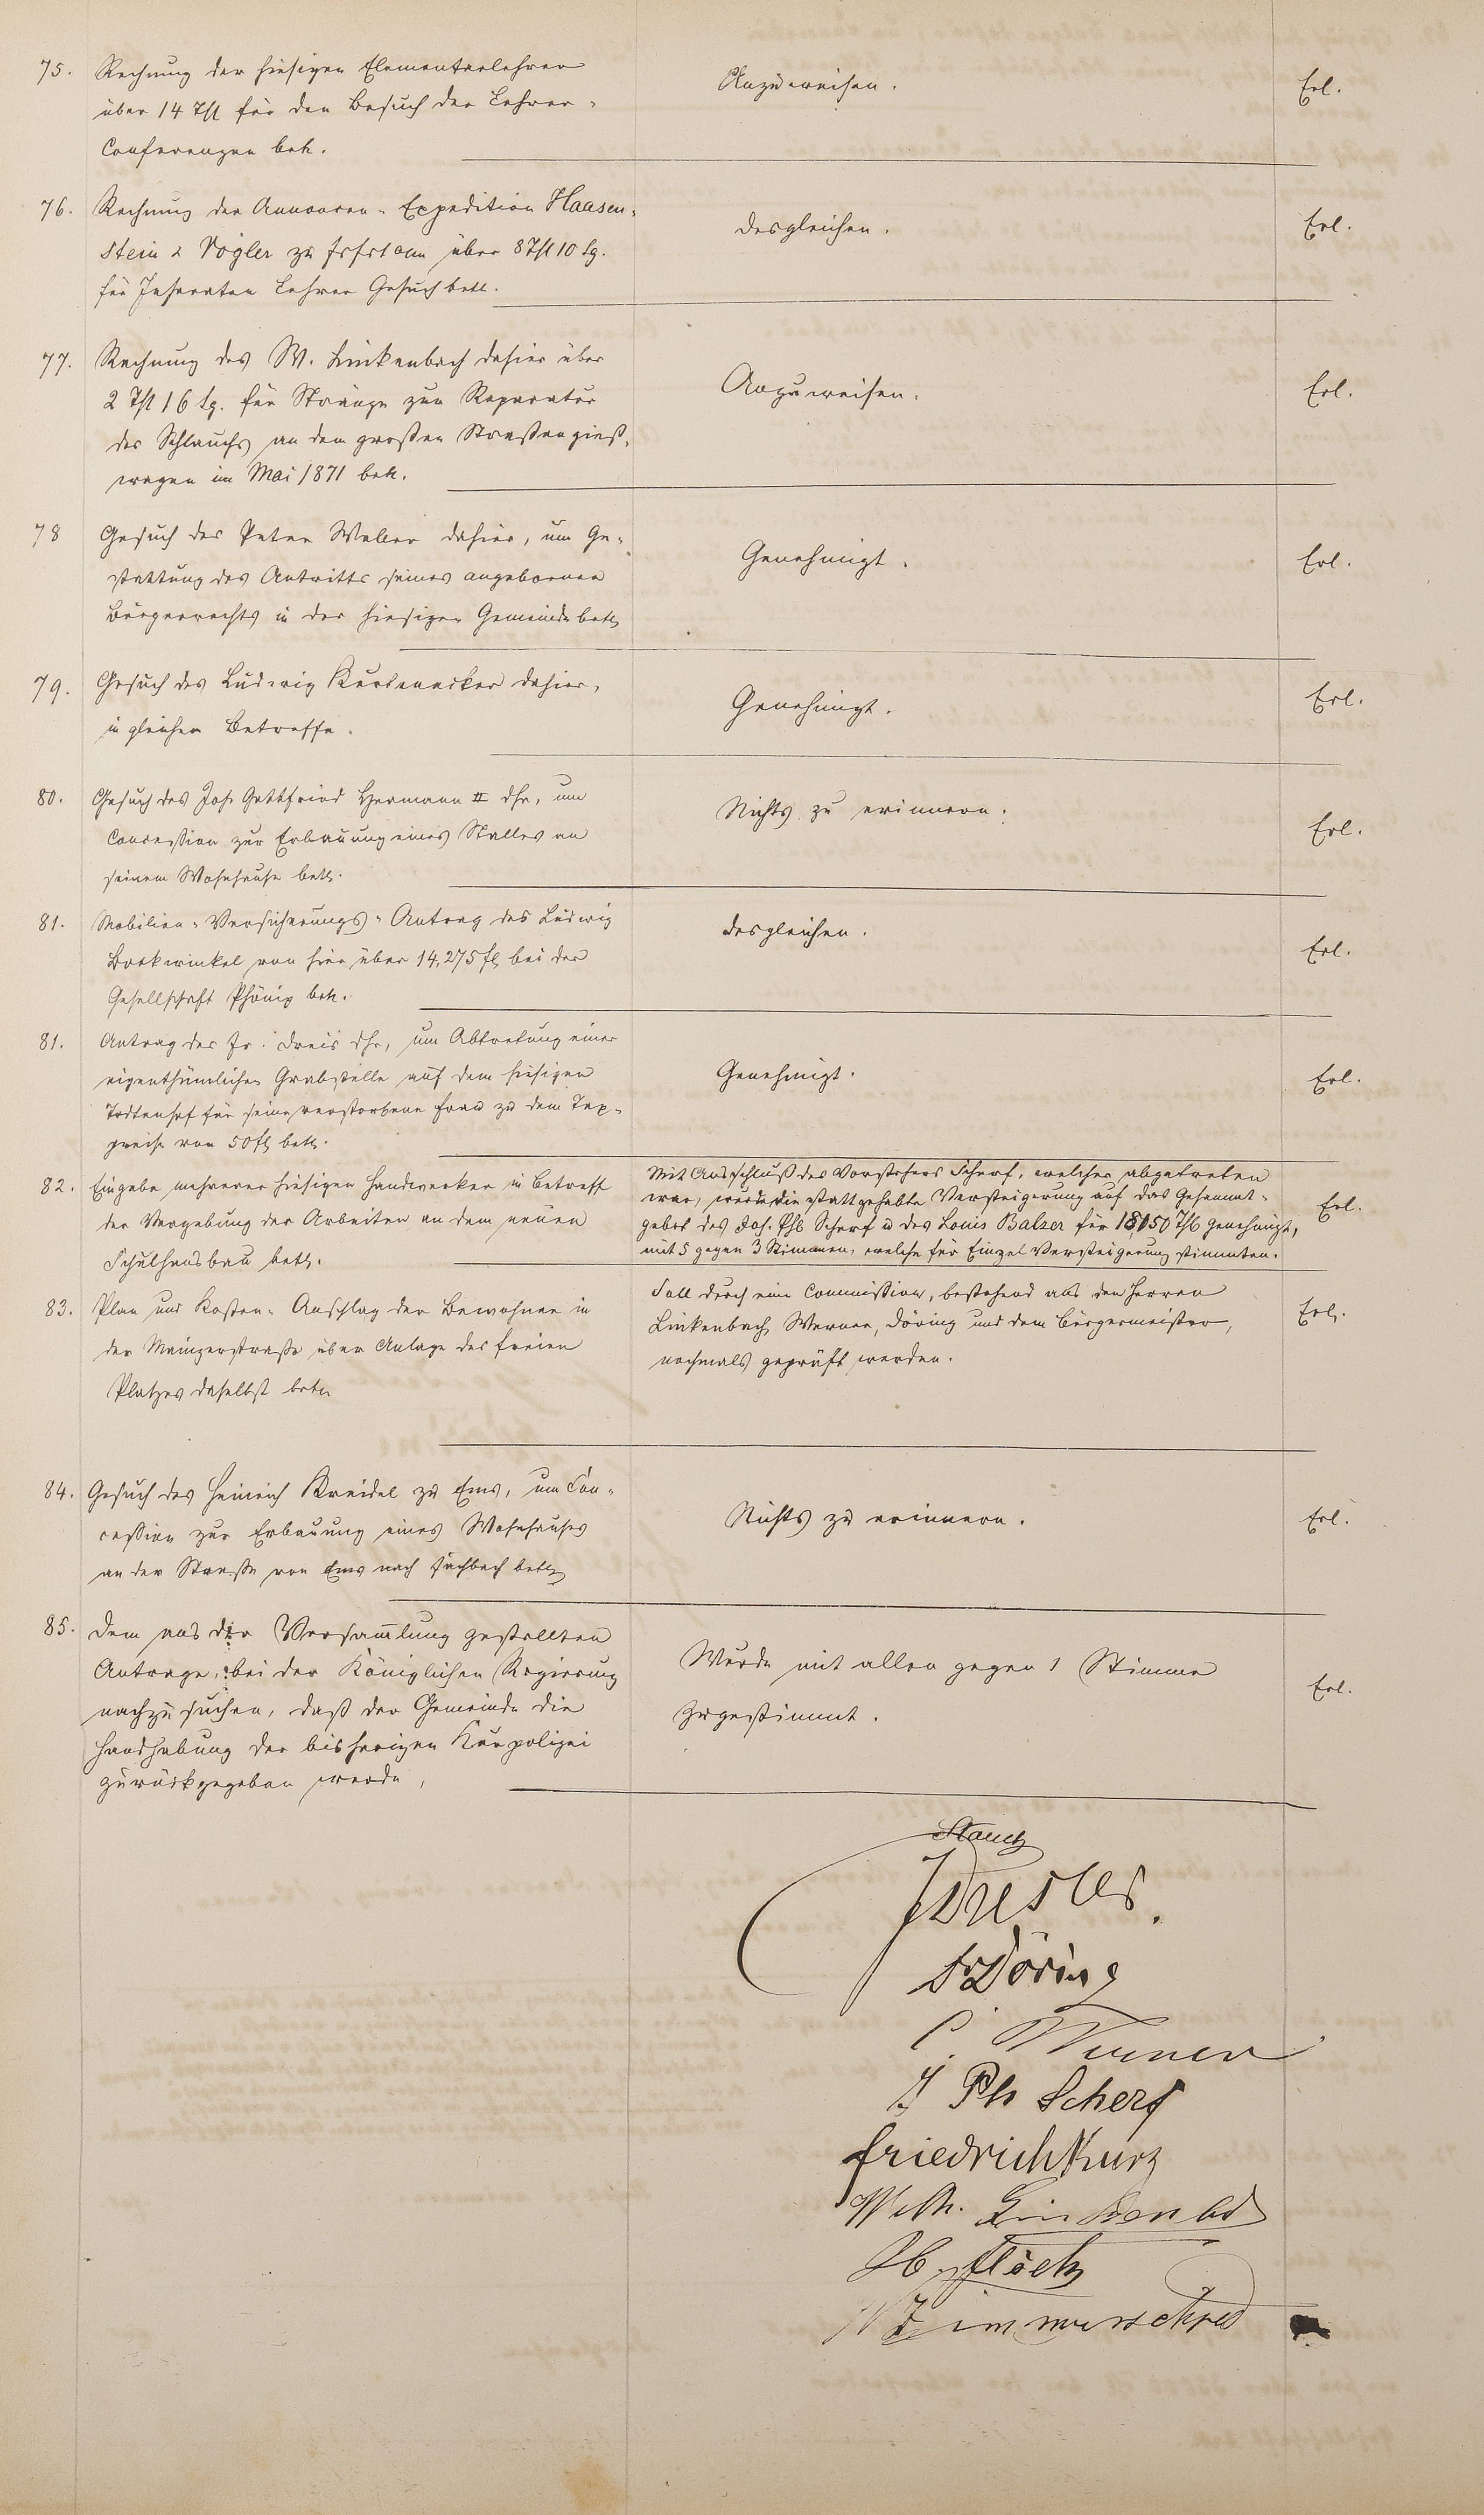 75. Rechnung der hiesigen Elementarlehrer
über 14 Thl für den Besuch der Lehrer-
Conferenzen betr.
Anzuweisen.
Erl.
76. Rechnung der Annoncen-Expedition Haasen-
stein & Vogler zu Frfrt a/m über 8 Thl 10 Sg.
für Inseraten Lehrer Gesuch betr.
desgleichen.
Erl.
77. Rechnung des W. Linkenbach dahier über
2 Thl 16 Sg. für Stränge zur Reparatur
des Schlauchs an dem großen Straßengieß-
wagen im Mai 1871 betr.
Anzuweisen.
Erl.
78 Gesuch des Peter Weller dahier, um Ge-
stattung des Antritts seines angebornen
Bürgerrechts in der hiesigen Gemeinde betr
Genehmigt.
Erl.
79. Gesuch des Ludwig dahier,
in gleichem Betreffe.
Genehmigt.
Erl.
80. Gesuch des Joh. Gottfried Hermann II dhr, um
Concession zur Erbauung eines Stalles an
seinem Wohnhause betr.
Nichts zu erinnern.
Erl.
81. Mobilien-Versicherungs-Antrag des Ludwig
Bockwinkel von hier über 14,275 fl bei der
Gesellschaft Phönix betr.
desgleichen.
Erl.
81. Antrag des Fr. Dreis dhr, um Abtretung einer
eigenthümlichen Grabstelle auf dem hiesigen
Todtenhof für seine verstorbene Frau zu dem Tax-
preise von 50 fl betr.
Genehmigt.
Erl.
82. Eingabe mehrerer hiesigen Handwerker in Betreff
der Vergebung der Arbeiten an dem neuen
Schulhausbau betr.
Mit Ausschluß des Vorstehers Scherf, welcher abgetreten
war, wurde die stattgehabte Versteigerung auf das Gesammt-
gebot des Joh. Phl Scherf u des Louis Balzer für 18,150 Thl genehmigt,
mit 5 gegen 3 Stimmen, welche für Einzel Versteigerung stimmten.
Erl.
83. Plan und Kosten-Anschlag der Bewohner in
der Mainzerstraße über Anlage des freien
Platzes daselbst betr
Soll durch eine Commission, bestehend aus den Herren
Linkenbach, Werner, Döring und dem Bürgermeister,
nochmals geprüft werden.
Erl.
84. Gesuch des Heinrich Kreidel zu Ems, um Con-
cession zur Erbauung eines Wohnhauses
an der Straße von Ems nach Fachbach betr
Nichts zu erinnern.
Erl.
85. Dem aus der Versammlung gestellten
Antrage, bei der Königlichen Regierung
nachzusuchen, daß der Gemeinde die
Handhabung der bisherigen Kurpolizei
zurückgegeben werde,
Wurde mit allen gegen 1 Stimme
zugestimmt.
Erl.
Fr Döring
C. Werner
J Ph Scherf
Friedrich Kurz
Wilh. Linkenbach
H. Flöck
W Zimmerschied